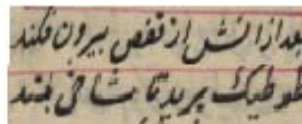 بعد ازانش از قفص بیرون فکند
طوطیک پرید تا شاخی بلند